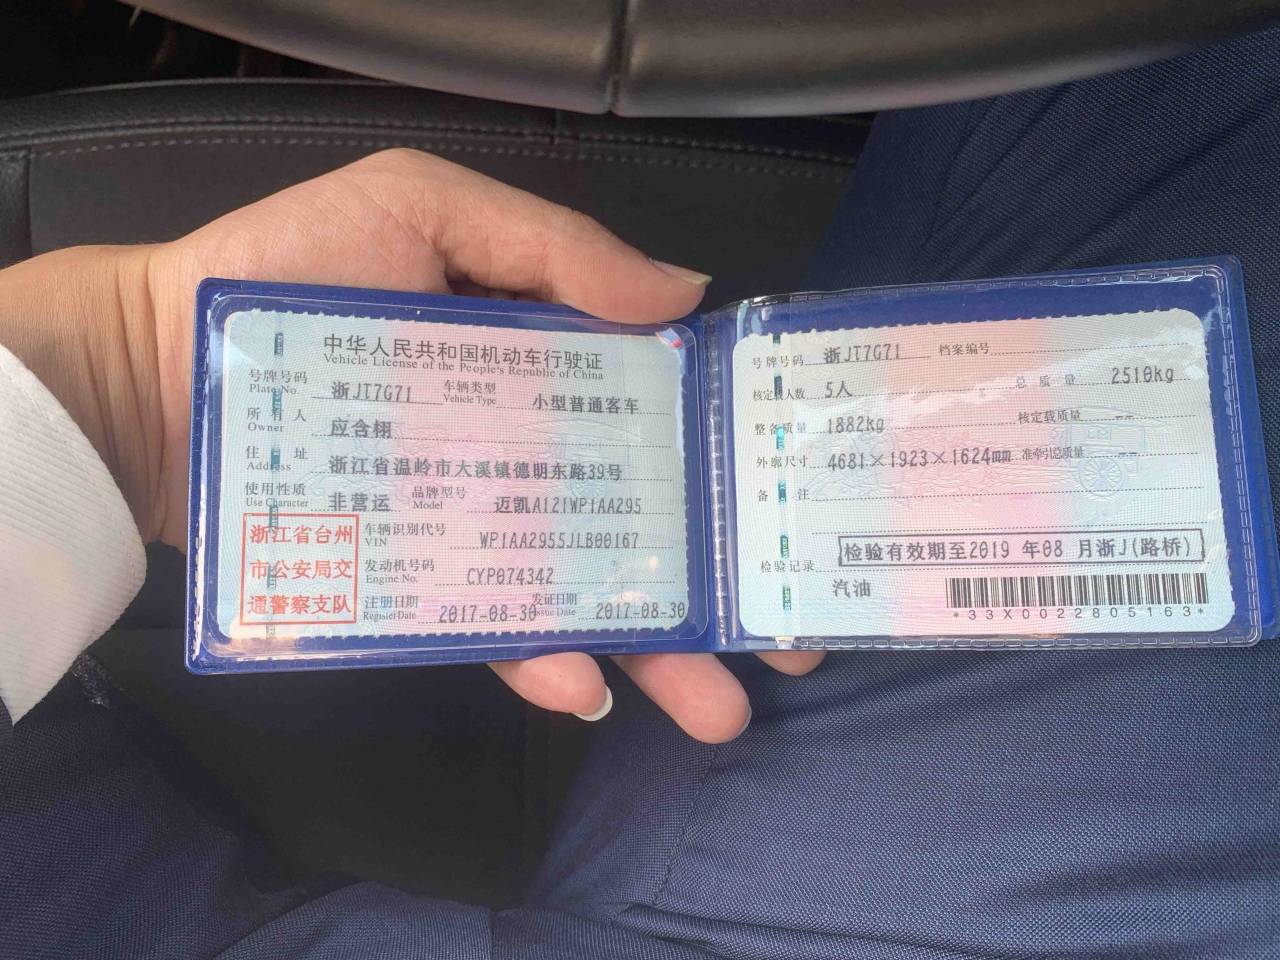 中华人民共和国机动车行驶证
Vehicle License of the People's Republic of China
号牌号码 浙JT7G71 车辆类型 小型普通客车
Plate No. Vehicle Type
所有人 应含栩
Owner
住址 浙江省温岭市大溪镇德明东路39号
Address
使用性质 非营运 品牌型号 迈凯A121WP1AA295
Use Character Model
浙江省台州
市公安局交
通警察支队
车辆识别代号 WP1AA2955JLB00167
VIN
发动机号码 CYP074342
Engine No.
注册日期 2017-08-30 发证日期 2017-08-30
Register Date Issue Date
号牌号码 浙JT7G71 档案编号
核定载人数 5人 总质量 2510kg
整备质量 1882kg 核定载质量 --
外廓尺寸 4681×1923×1624mm 准牵引总质量 --
备注
检验记录 检验有效期至2019 年08 月浙J(路桥)
汽油
*33X0022805163*